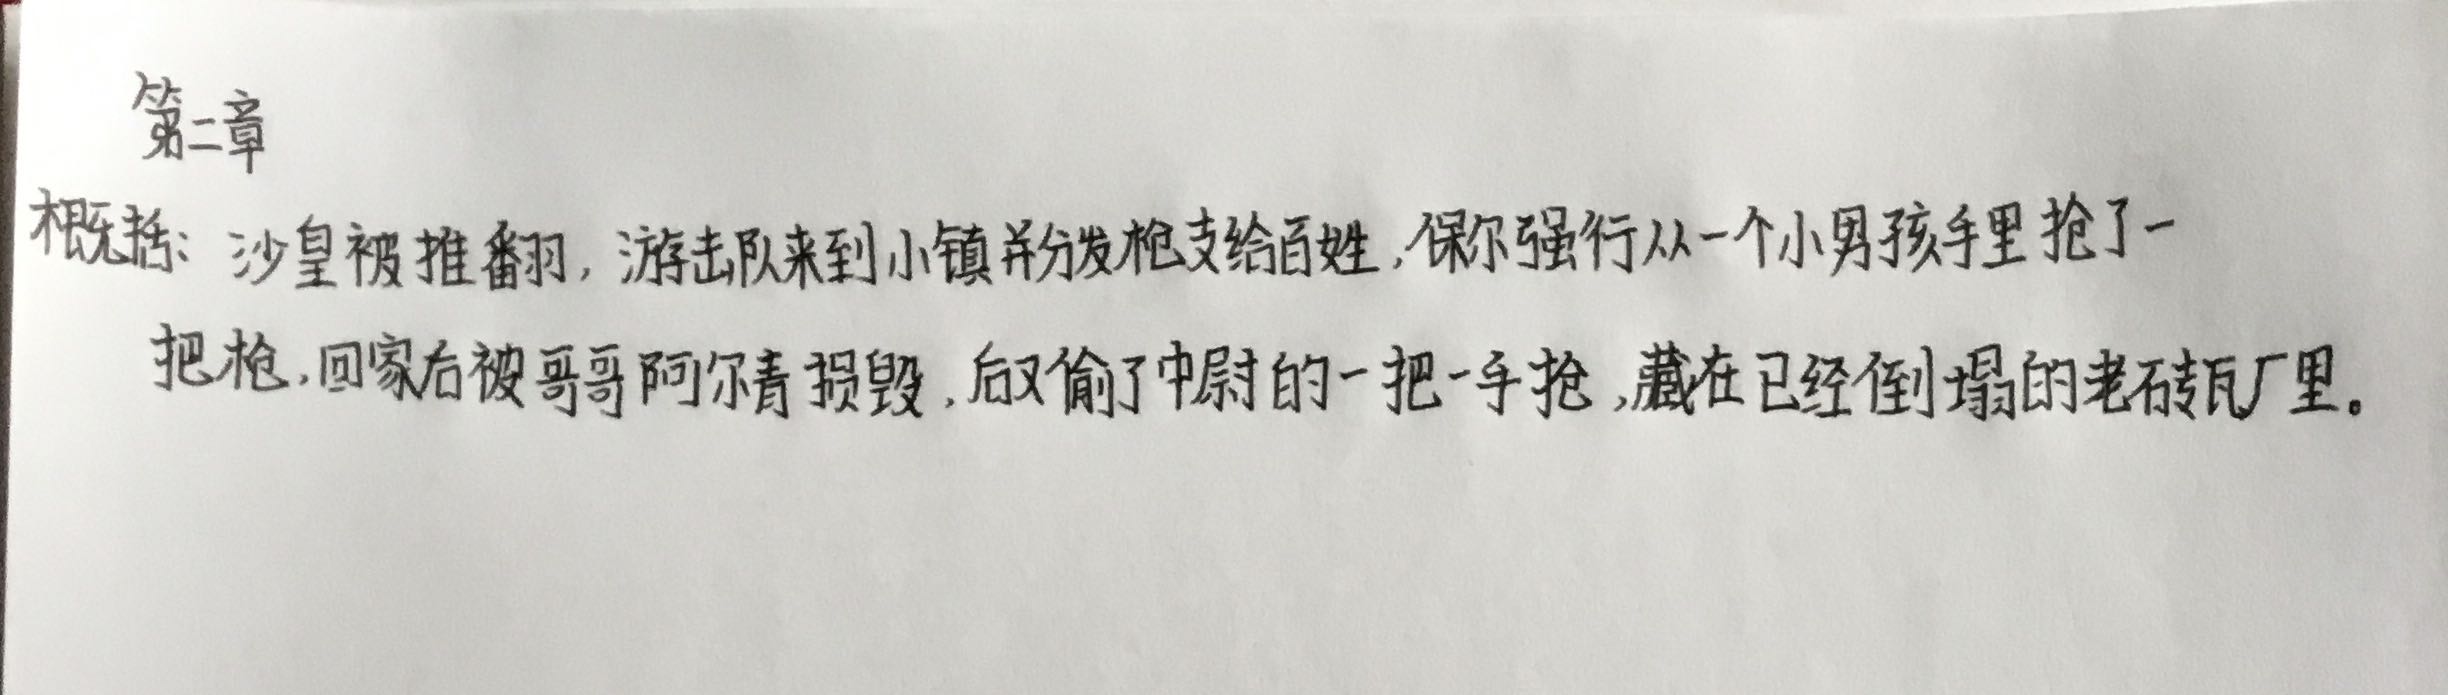 第二章
概括：沙皇被推翻，游击队来到小镇并分发枪支给百姓，保尔强行从一个小男孩手里抢了一
把枪，回家后被哥哥阿尔青损毁，后又偷了中尉的一把一手抢，藏在已经倒塌的老砖瓦厂里。